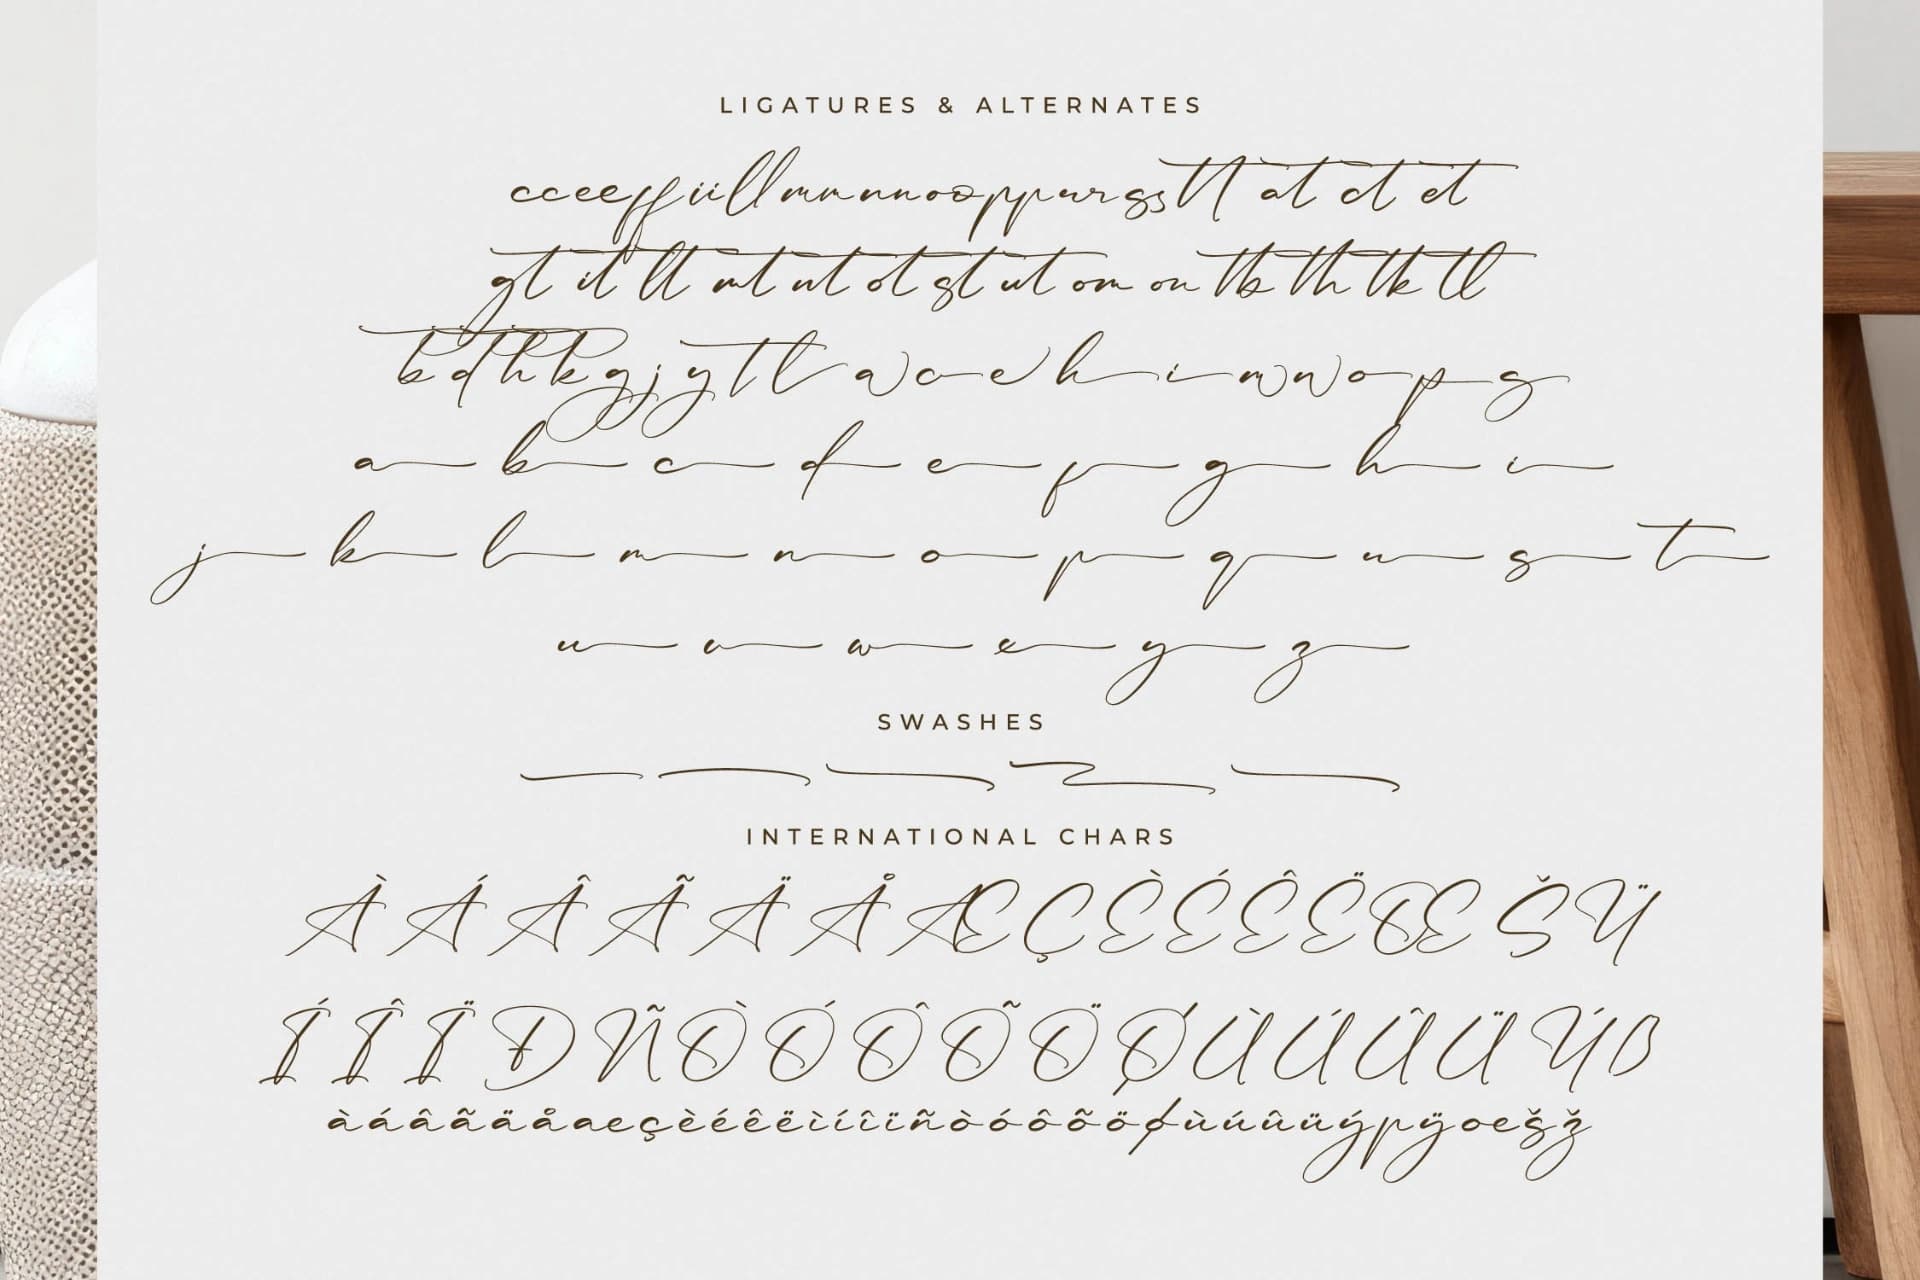 LIGATURES & ALTERNATES
cc ee ff ii ll mm nn oo pp ur rs ss tt at ct et
gt it lt mt nt ot st ut om on tb th tk tl
b d h k g j y t l a c e h i m n o p s
a b c d e f g h i
j k l m n o p q u s t
u v w x y z
SWASHES
INTERNATIONAL CHARS
À Á Â Ã Ä Å Æ Ç È É Ê Ë Œ Š Ÿ
Í Î Ï Ð Ñ Ò Ó Ô Õ Ö Ø Ù Ú Û Ü Ý
à á â ã ä å æ ç è é ê ë ì í î ï ñ ò ó ô õ ö ø ù ú û ü ý þ ÿ œ š ž